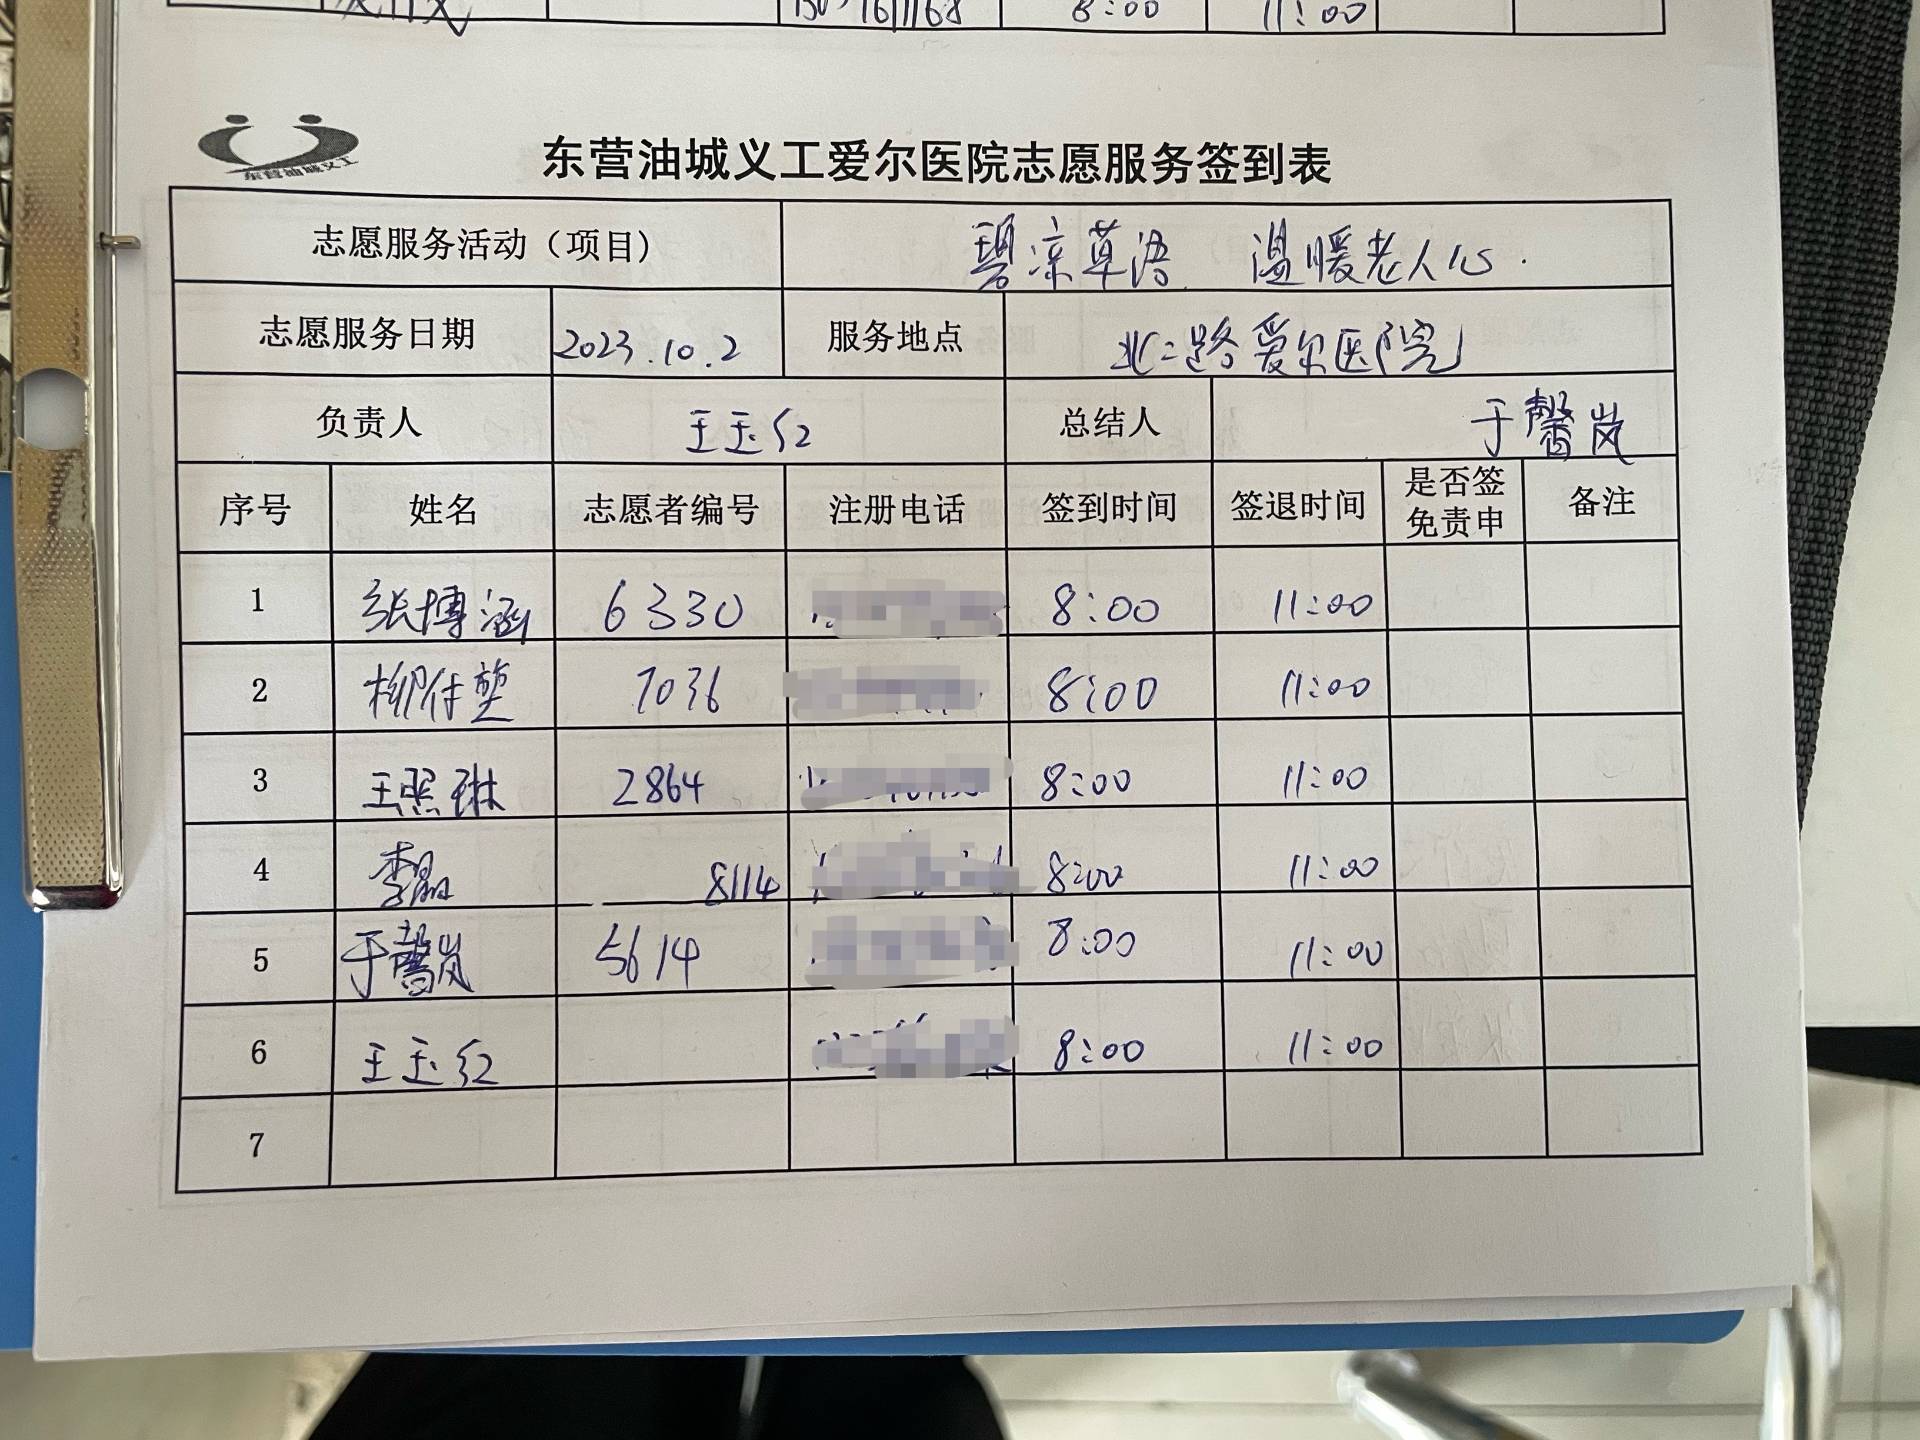 8:00 11:00
东营油城义工
东营油城义工爱尔医院志愿服务签到表
志愿服务活动（项目） 碧凉草语 温暖老人心.
志愿服务日期 2023.10.2 服务地点 北二路爱尔医院
负责人 王玉红 总结人 于馨岚
序号 姓名 志愿者编号 注册电话 签到时间 签退时间 是否签免责申 备注
1 张博涵 6330 8:00 11:00
2 7036 8:00 11:00
3 王照琳 2864 8:00 11:00
4 李晶 8114 8:00 11:00
5 于馨岚 5614 8:00 11:00
6 王玉红 8:00 11:00
7